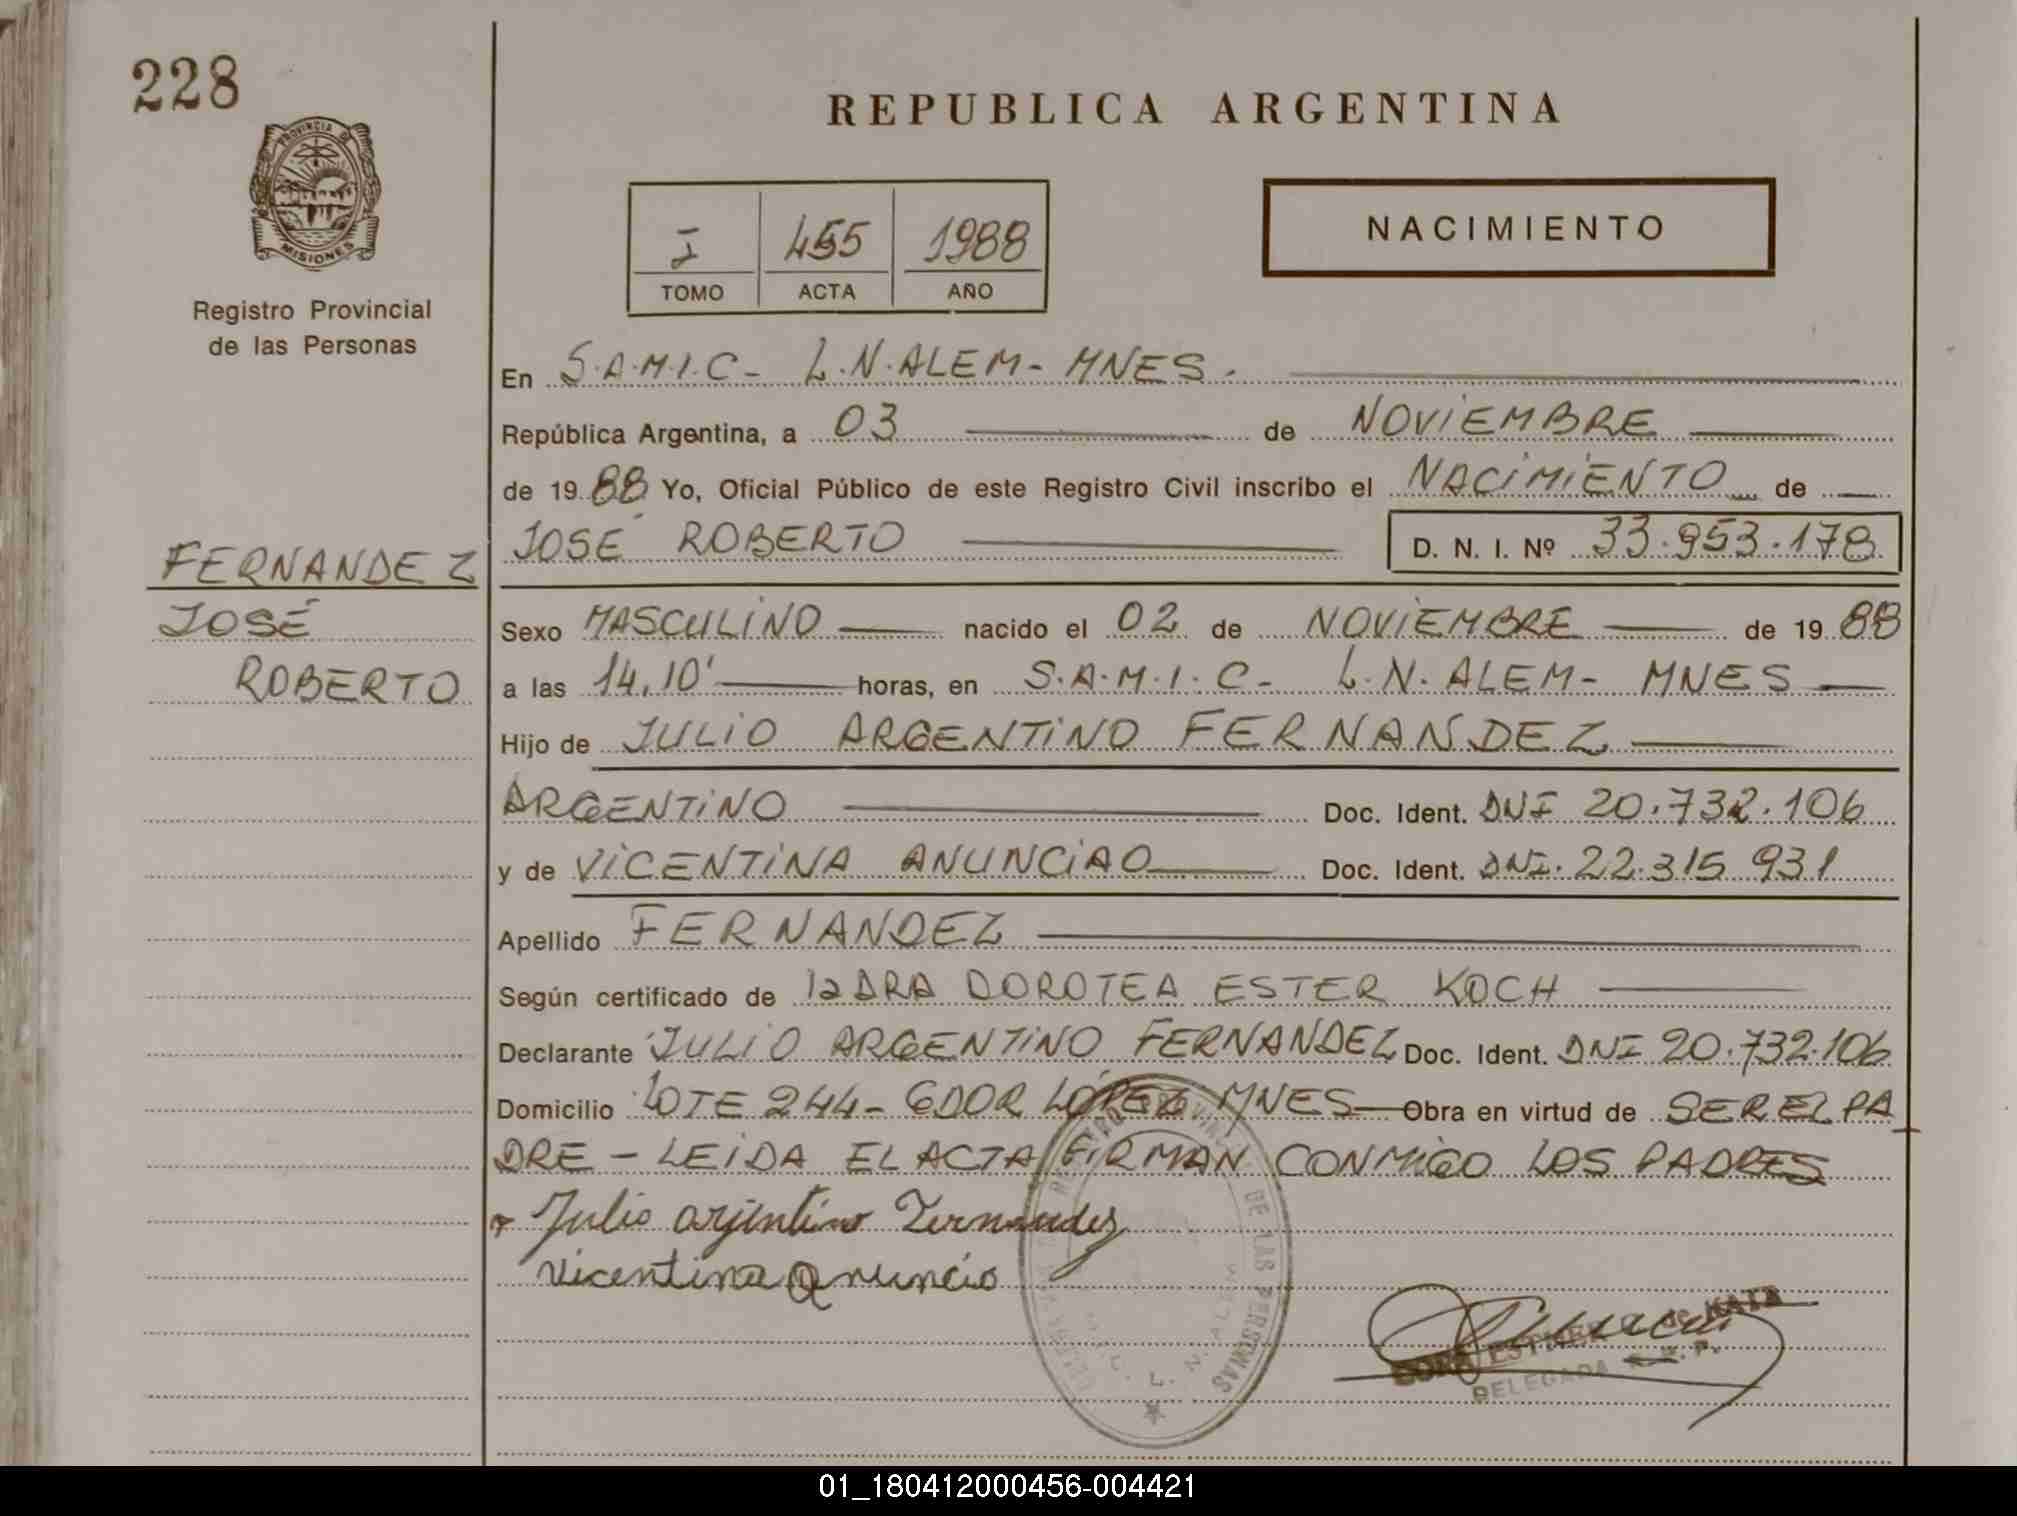 228
REPUBLICA ARGENTINA
PROVINCIA DE
MISIONES
Registro Provincial
de las Personas
I 455 1988
TOMO ACTA AÑO
NACIMIENTO
En S.A.M.I.C- L.N.ALEM- MNES.
República Argentina, a 03 de NOVIEMBRE
de 1988 Yo, Oficial Público de este Registro Civil inscribo el NACIMIENTO de
JOSÉ ROBERTO D. N. I. Nº 33.953.178
FERNANDEZ
JOSÉ
ROBERTO
Sexo MASCULINO nacido el 02 de NOVIEMBRE de 1988
a las 14,10' horas, en S.A.M.I.C- L.N. ALEM- MNES
Hijo de JULIO ARGENTINO FERNANDEZ
ARGENTINO Doc. Ident. DNI 20.732.106
y de VICENTINA ANUNCIAO Doc. Ident. DNI. 22.315.931
Apellido FERNANDEZ
Según certificado de la DRA DOROTEA ESTER KOCH
Declarante JULIO ARGENTINO FERNANDEZ Doc. Ident. DNI 20.732.106
Domicilio LOTE 244- GDOR LÓPEZ MNES Obra en virtud de SER EL PA
DRE - LEIDA EL ACTA FIRMAN CONMIGO LOS PADRES
Julio arjentino Fernandez
Vicentina Anuncio
DE LAS PERSONAS
L. N. ALEM
ESTHER de KATZ
DELEGADA R. P. P.
01_180412000456-004421